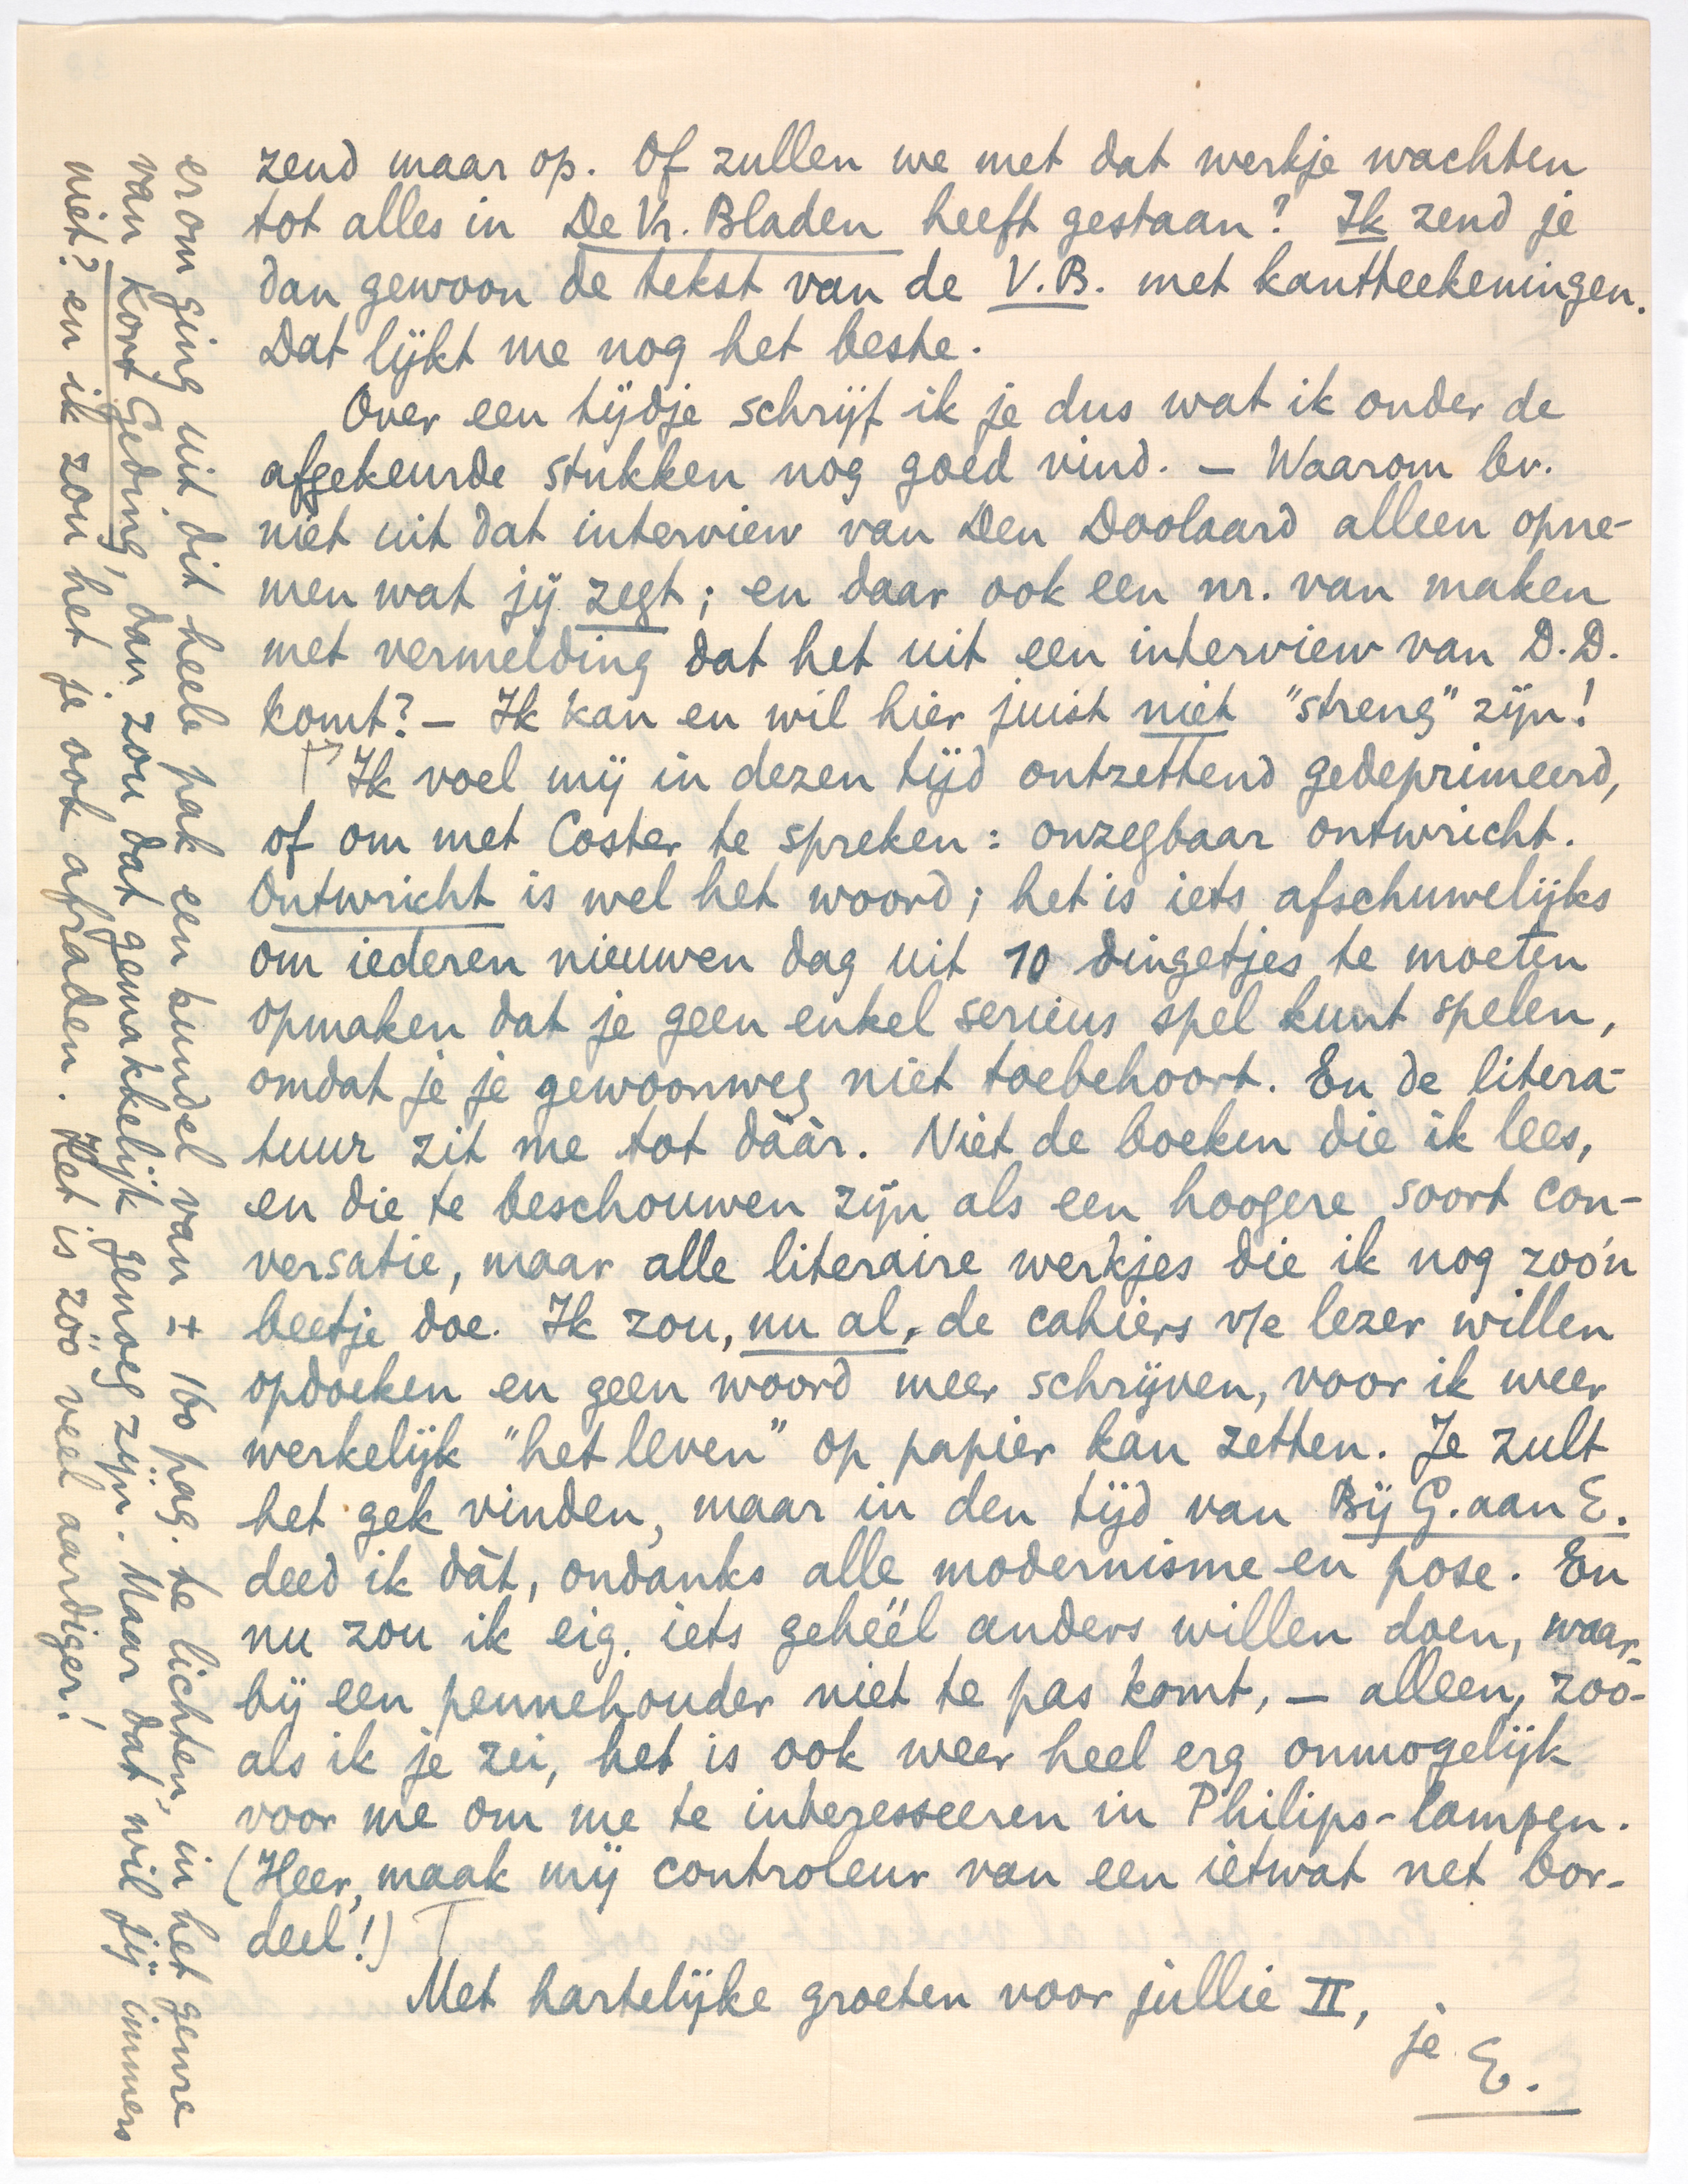 zend maar op. Of zullen we met dat werkje wachten
tot alles in De Vr. Bladen heeft gestaan? Ik zend je
dan gewoon de tekst van de V.B. met kantteekeningen.
Dat lijkt me nog het beste.
Over een tijdje schrijf ik je dus wat ik onder de
afgekeurde stukken nog goed vind. — Waarom bv.
niet uit dat interview van Den Doolaard alleen opne-
men wat jij zegt; en daar ook een nr. van maken
met vermelding dat het uit een interview van D.D.
komt? — Ik kan en wil hier juist niet "streng" zijn!
Ik voel mij in dezen tijd ontzettend gedeprimeerd,
of om met Coster te spreken: onzegbaar ontwricht.
Ontwricht is wel het woord; het is iets afschuwelijks
om iederen nieuwen dag uit 10 dingetjes te moeten
opmaken dat je geen enkel serieus spel kunt spelen,
omdat je je gewoonweg niet toebehoort. En de litera-
tuur zit me tot dáár. Niet de boeken die ik lees,
en die te beschouwen zijn als een hoogere soort con-
versatie, maar alle literaire werkjes die ik nog zoo'n
beetje doe. Ik zou, nu al, de cahiers v/e lezer willen
opdoeken en geen woord meer schrijven, voor ik weer
werkelijk "het leven" op papier kan zetten. Je zult
het gek vinden, maar in den tijd van Bij G. aan E.
deed ik dàt, ondanks alle modernisme en pose. En
nu zou ik eig. iets gehéél anders willen doen, waar-
bij een pennehouder niet te pas komt, — alleen, zoo-
als ik je zei, het is ook weer heel erg onmogelijk
voor me om me te interesseeren in Philips-lampen.
(Heer, maak mij controleur van een ietwat net bor-
deel!)
Met hartelijke groeten voor jullie II,
je E.
erom ging uit dit heele pak een bundel van ± 160 pag. te lichten, in het genre
van Kort Geding, dan zou dat gemakkelijk genoeg zijn. Maar dat wil jij immers
niet? en ik zou het je ook afraden. Het is zóó veel aardiger!